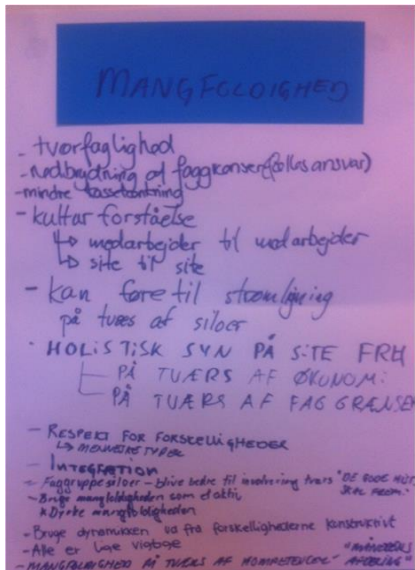 MANGFOLDIGHED
- tværfaglighed
- nedbrydning af faggrænser (fælles ansvar)
- mindre kassetænkning
- kultur forståelse
↳ medarbejder til medarbejder
↳ site til site
- kan føre til strømligning
på tværs af siloer
· HOLISTISK SYN PÅ SITE FRH
- PÅ TVÆRS AF ØKONOMI
- PÅ TVÆRS AF FAGGRÆNSER
- RESPEKT FOR FORSKELLIGHEDER
↳ MENNESKETYPER
- INTEGRATION
- Faggruppesiloer - blive bedre til involvering tværs "DE GODE HIST.
- Bruge mangfoldigheden som et aktiv SKAL FREM."
* Dyrke mangfoldigheden
- Bruge dynamikken ud fra forskellighederne konstruktivt
- Alle er lige vigtige
- MANGFOLDIGHED PÅ TVÆRS AF KOMPETENCER "MÅNEDENS
AFDELING"